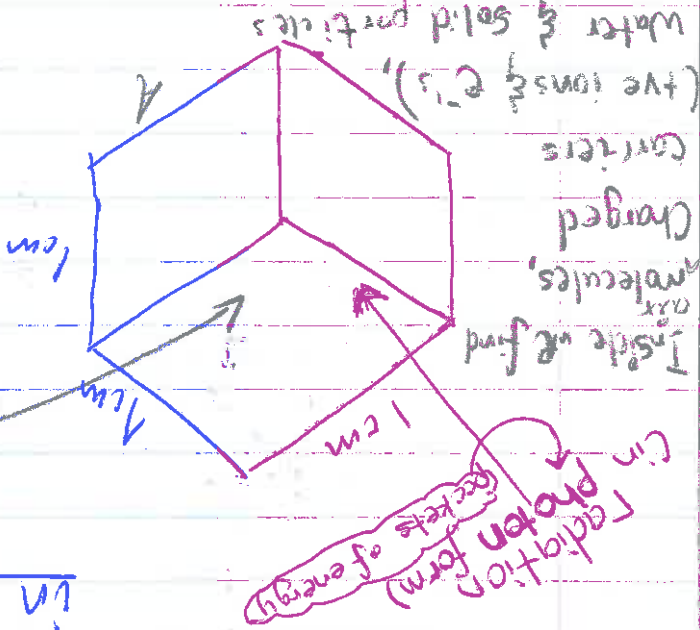 in
radiation
(in photon form)
packets of energy
1cm
1cm
1cm
1
Inside we find
air
molecules,
Charged
carriers
(+ve ions & e⁻'s),
Water & solid particles